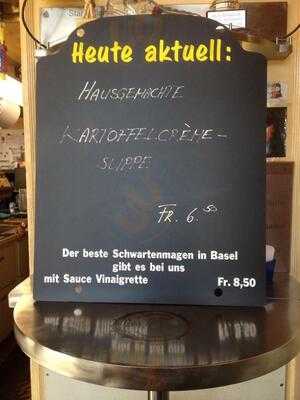 Heute aktuell:
HAUSGEMACHTE
KARTOFFELCRÈME-
SUPPE
FR. 6.50
Der beste Schwartenmagen in Basel
gibt es bei uns
mit Sauce Vinaigrette Fr. 8,50